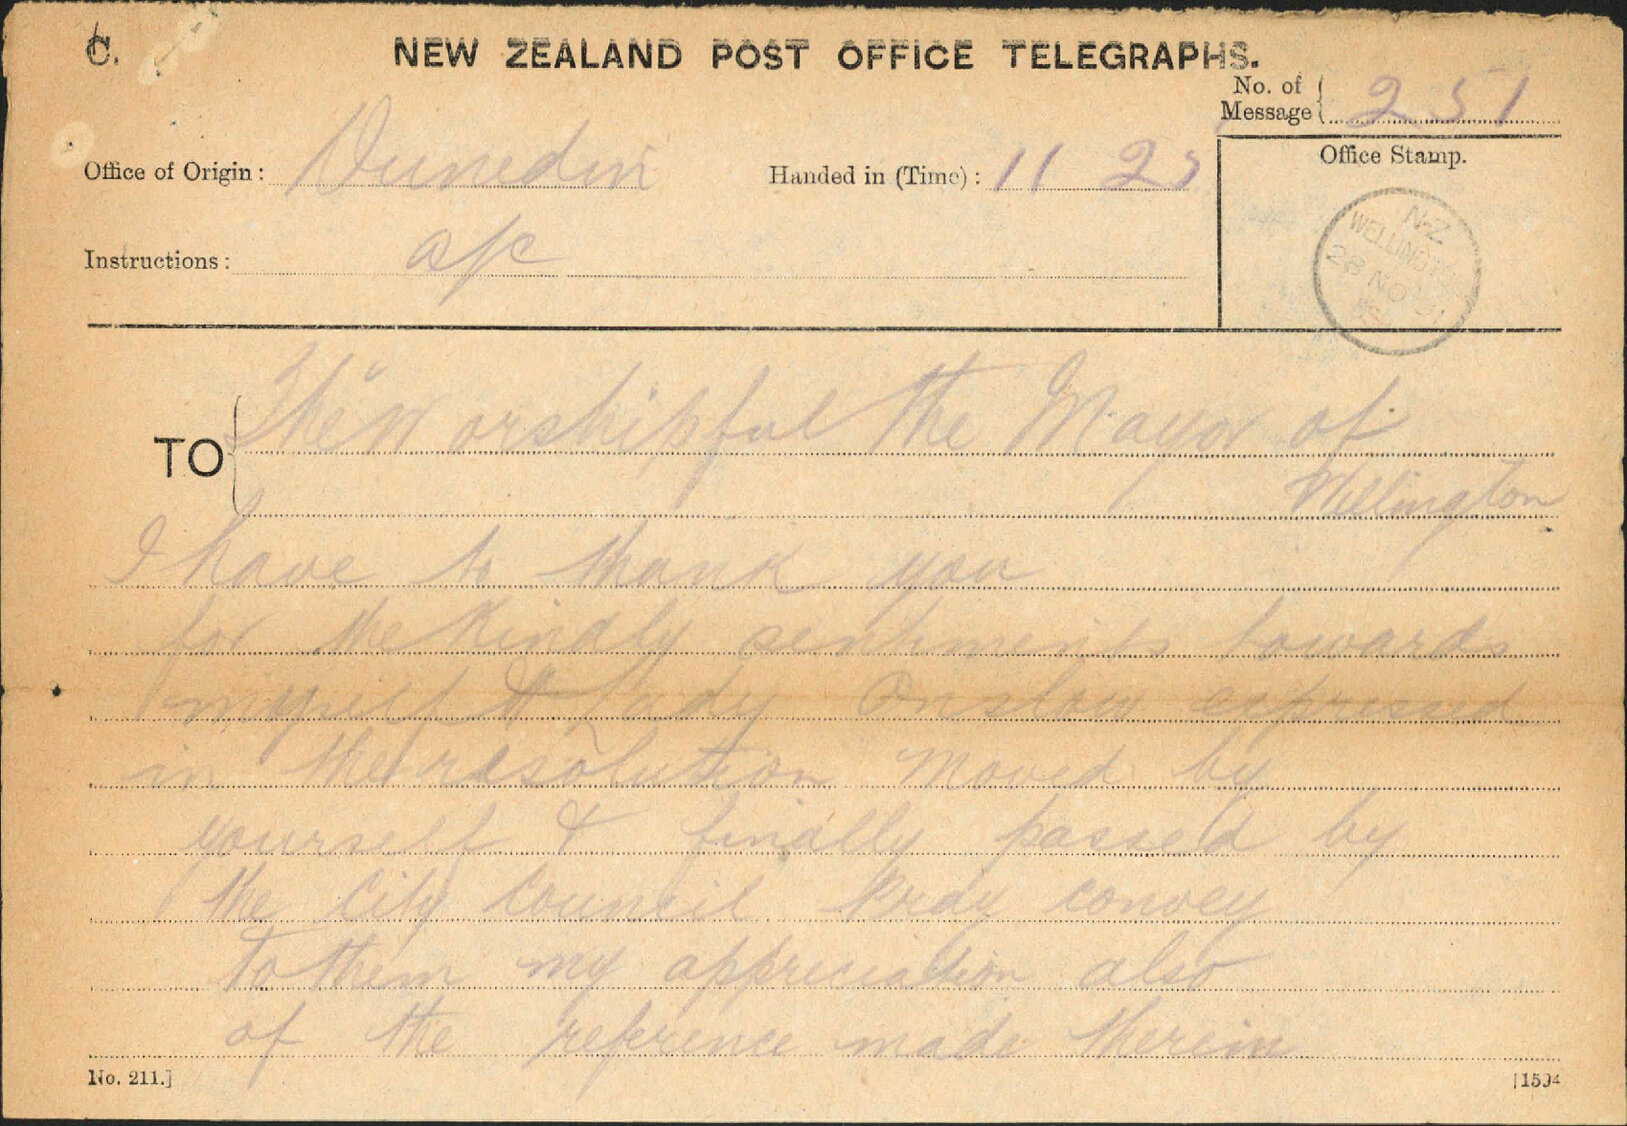 C.
NEW ZEALAND POST OFFICE TELEGRAPHS.
No. of Message 251
Office of Origin: Dunedin
Handed in (Time): 11 25
Office Stamp.
Instructions:
N-Z
WELLINGTON
28 NO
TO
The Worshipful the Mayor of
Wellington
I have to thank you
for the kindly sentiments towards
myself & Lady Onslow expressed
in the resolution moved by
yourself & finally passed by
the City Council Pray convey
to them my appreciation also
of the reference made therein
No. 211.]